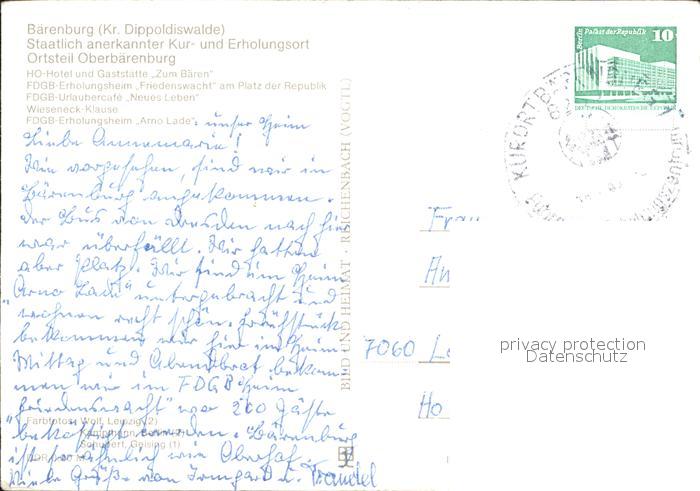 Bärenburg (Kr. Dippoldiswalde)
Staatlich anerkannter Kur- und Erholungsort
Ortsteil Oberbärenburg
HO-Hotel und Gaststätte „Zum Bären"
FDGB-Erholungsheim „Friedenswacht" am Platz der Republik
FDGB-Urlaubercafé „Neues Leben"
Wieseneck-Klause
FDGB-Erholungsheim „Arno Lade": unser Heim
Liebe Annemarie!
Wie vorgesehen, sind wir in
Bärenburg angekommen.
Der Bus von Dresden nach hier
war überfüllt. Wir hatten
aber Platz. Wir sind im Heim
„Arno Lade" untergebracht und
wohnen recht schön. Frühstück
bekommen wir hier im Heim
Mittag und Abendbrot bekom
men wir im FDGB Heim
„Friedenswacht" wo 200 Gäste
Farbfotos: Wolf, Leipzig (2)
beköstigt werden. Bärenburg
Schubert, Geising (1)
ist so ähnlich wie Oberhof.
Viele Grüße von Irmgard u. Traudel
BILD UND HEIMAT · REICHENBACH (VOGTL)
Berlin Palast der Republik 10
DEUTSCHE DEMOKRATISCHE REPUBLIK
KURORT
Frau
An
7060 Le
Ho
privacy protection
Datenschutz